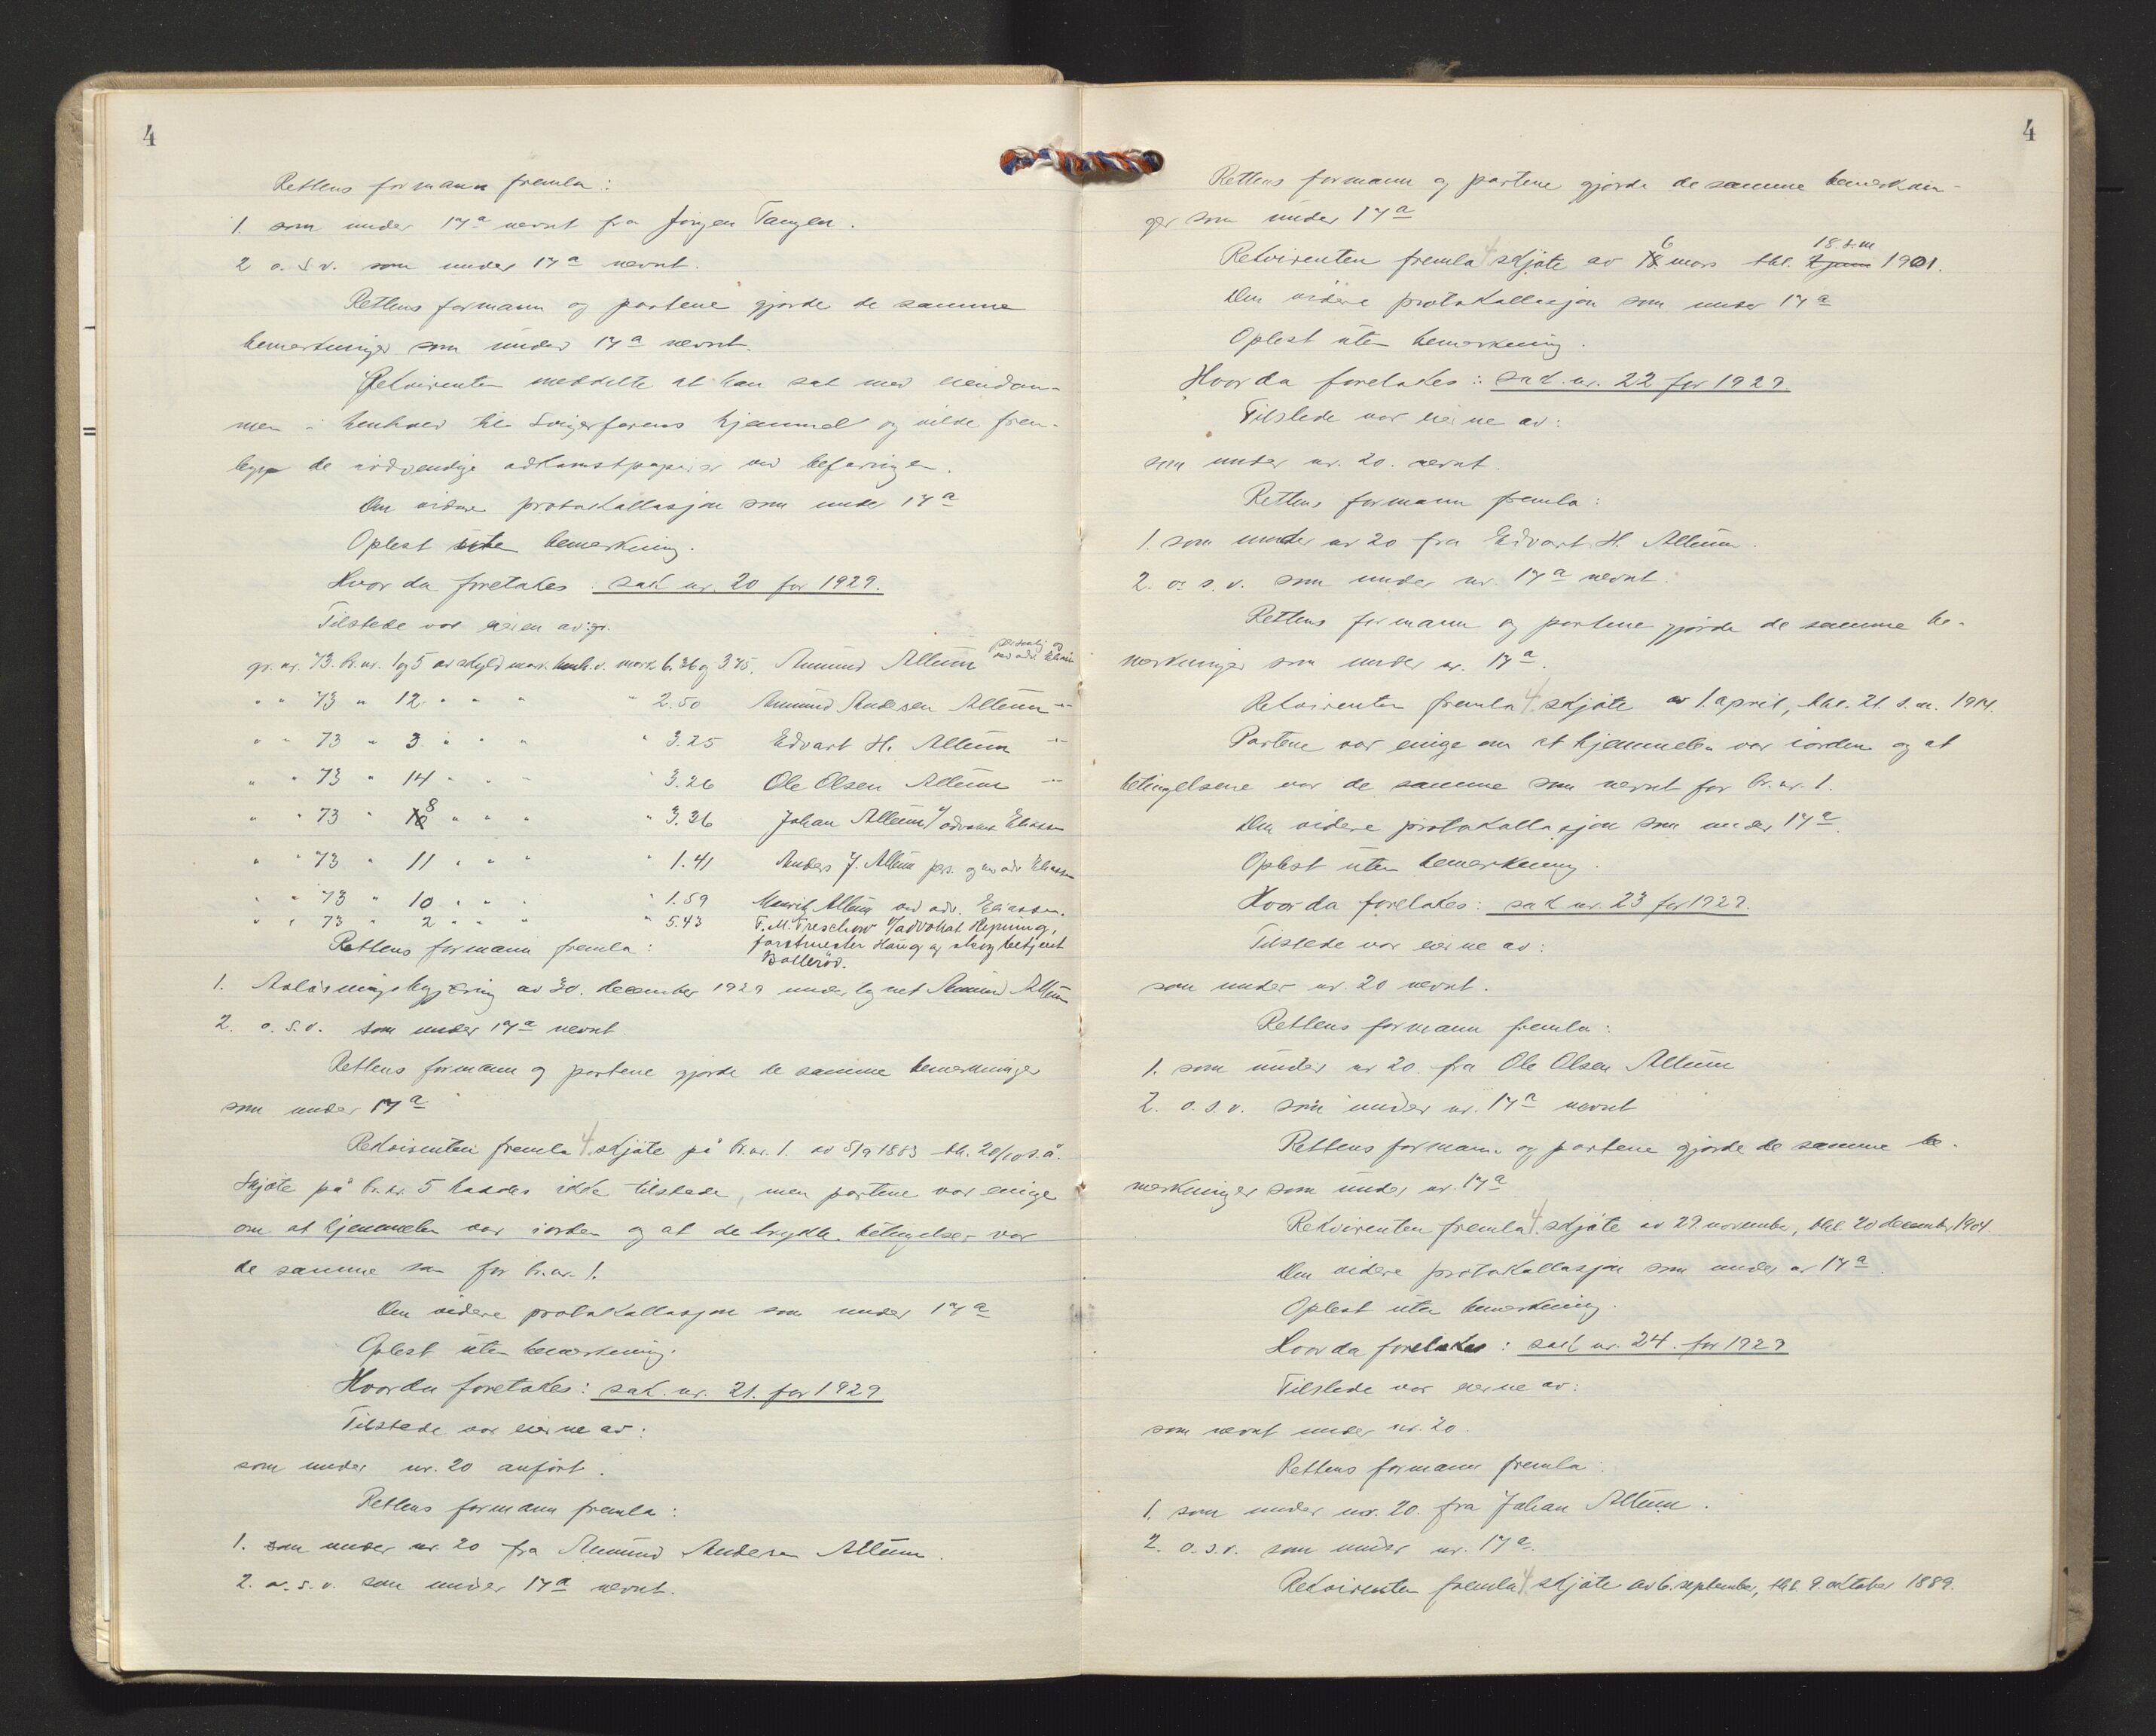 4
Rettens formann fremla:
1. som under 17a nevnt fra Jörgen Tangen.
2 o.s.v. som under 17a nevnt.
Rettens formann og partene gjorde de samme
bemerkninger som under 17a nevnt.
Rekvirenten meddelte at han sat med eiendom-
men i henhold til Svigerfarens hjemmel og vilde frem-
legge de nödvendige adkomstpapirer ved befaringen.
Den videre protokollasjon som under 17a
Oplest uten bemerkning.
Hvor da foretakes: sak nr. 20 for 1929.
Tilstede var eieren av: gr.
gr. nr. 73. br.nr. 1 og 5 av skyld mark henh.v. mark 6.36 og 3.75. Amund Allum personlig og ved adv. Eliassen
" " 73 " 12 " " " " 2.50 Amund Andersen Allum -"-
" " 73 " 3 " " " " 3.25 Edvart H. Allum -"-
" " 73 " 14 " " " " 3.26 Ole Olsen Allum -"-
" " 73 " 8 " " " " 3.36 Johan Allum v/ advokat Eliassen
" " 73 " 11 " " " " 1.41 Anders J. Allum pers. og ved adv. Eliassen
" " 73 " 10 " " " " 1.59 Mauritz Allum ved adv. Eliassen.
" " 73 " 2 " " " " 5.43 F.M. Treschow v/advokat Hepning,
Rettens formann fremla: forstmester Haug og skogbetjent
Bolleröd.
1. Avlösningsbegjæring av 30. december 1929 undertegnet Amund Allum
2. o.s.v. som under 17a nevnt.
Rettens formann og partene gjorde de samme bemerkninger
som under 17a
Rekvirenten fremla 4. skjöte på br.nr. 1. av 5/9 1883 thl. 20/10 s.å.
Skjöte på br.nr. 5 haddes ikke tilstede, men partene var enige
om at hjemmelen var iorden og at de trykte betingelser var
de samme som for br.nr. 1.
Den videre protokollasjon som under 17a
Oplest uten bemerkning.
Hvor da foretakes: sak. nr. 21. for 1929
Tilstede var eierne av:
som under nr. 20 anfört.
Rettens formann fremla:
1. som under nr. 20 fra Amund Andersen Allum.
2. o.s.v. som under 17a nevnt.
4
Rettens formann og partene gjorde de samme bemerknin-
ger som under 17a
6 18. s.m
Rekvirenten fremla 4 skjöte av 18. mars thl. 2 juni 1901.
Den videre protokollasjon som under 17a
Oplest uten bemerkning.
Hvor da foretakes: sak. nr. 22 for 1929
Tilstede var eierne av:
som under nr. 20. nevnt.
Rettens formann fremla:
1. som under nr 20 fra Edvart H. Allum.
2. o. s. v. som under nr. 17a nevnt.
Rettens formann og partene gjorde de samme be-
merkninger som under nr. 17a.
Rekvirenten fremla 4. skjöte av 1. april, thl. 21. s.m. 1914.
Partene var enige om at hjemmelen var iorden og at
betingelsene var de samme som nevnt for br.nr. 1.
Den videre protokollasjon som under 17a.
Oplest uten bemerkning.
Hvor da foretakes: sak nr. 23 for 1929.
Tilstede var eierne av:
som under nr. 20 nevnt.
Rettens formann fremla:
1. som under nr 20. fra Ole Olsen Allum
2. o.s.v. som under nr. 17a nevnt
Rettens formann og partene gjorde de samme be-
merkninger som under nr. 17a
Rekvirenten fremla 4. skjöte av 29. november, thl. 20 december 1904.
Den videre protokollasjon som under nr 17a.
Oplest uten bemerkning.
Hvor da foretakes: sak nr. 24. for 1929
Tilstede var eierne av:
som nevnt under nr. 20.
Rettens formann fremla:
1. som under nr. 20. fra Johan Allum.
2. o.s.v. som under nr. 17a.
Rekvirenten fremla 4. skjöte av 6. september, thl. 9. oktober 1889.